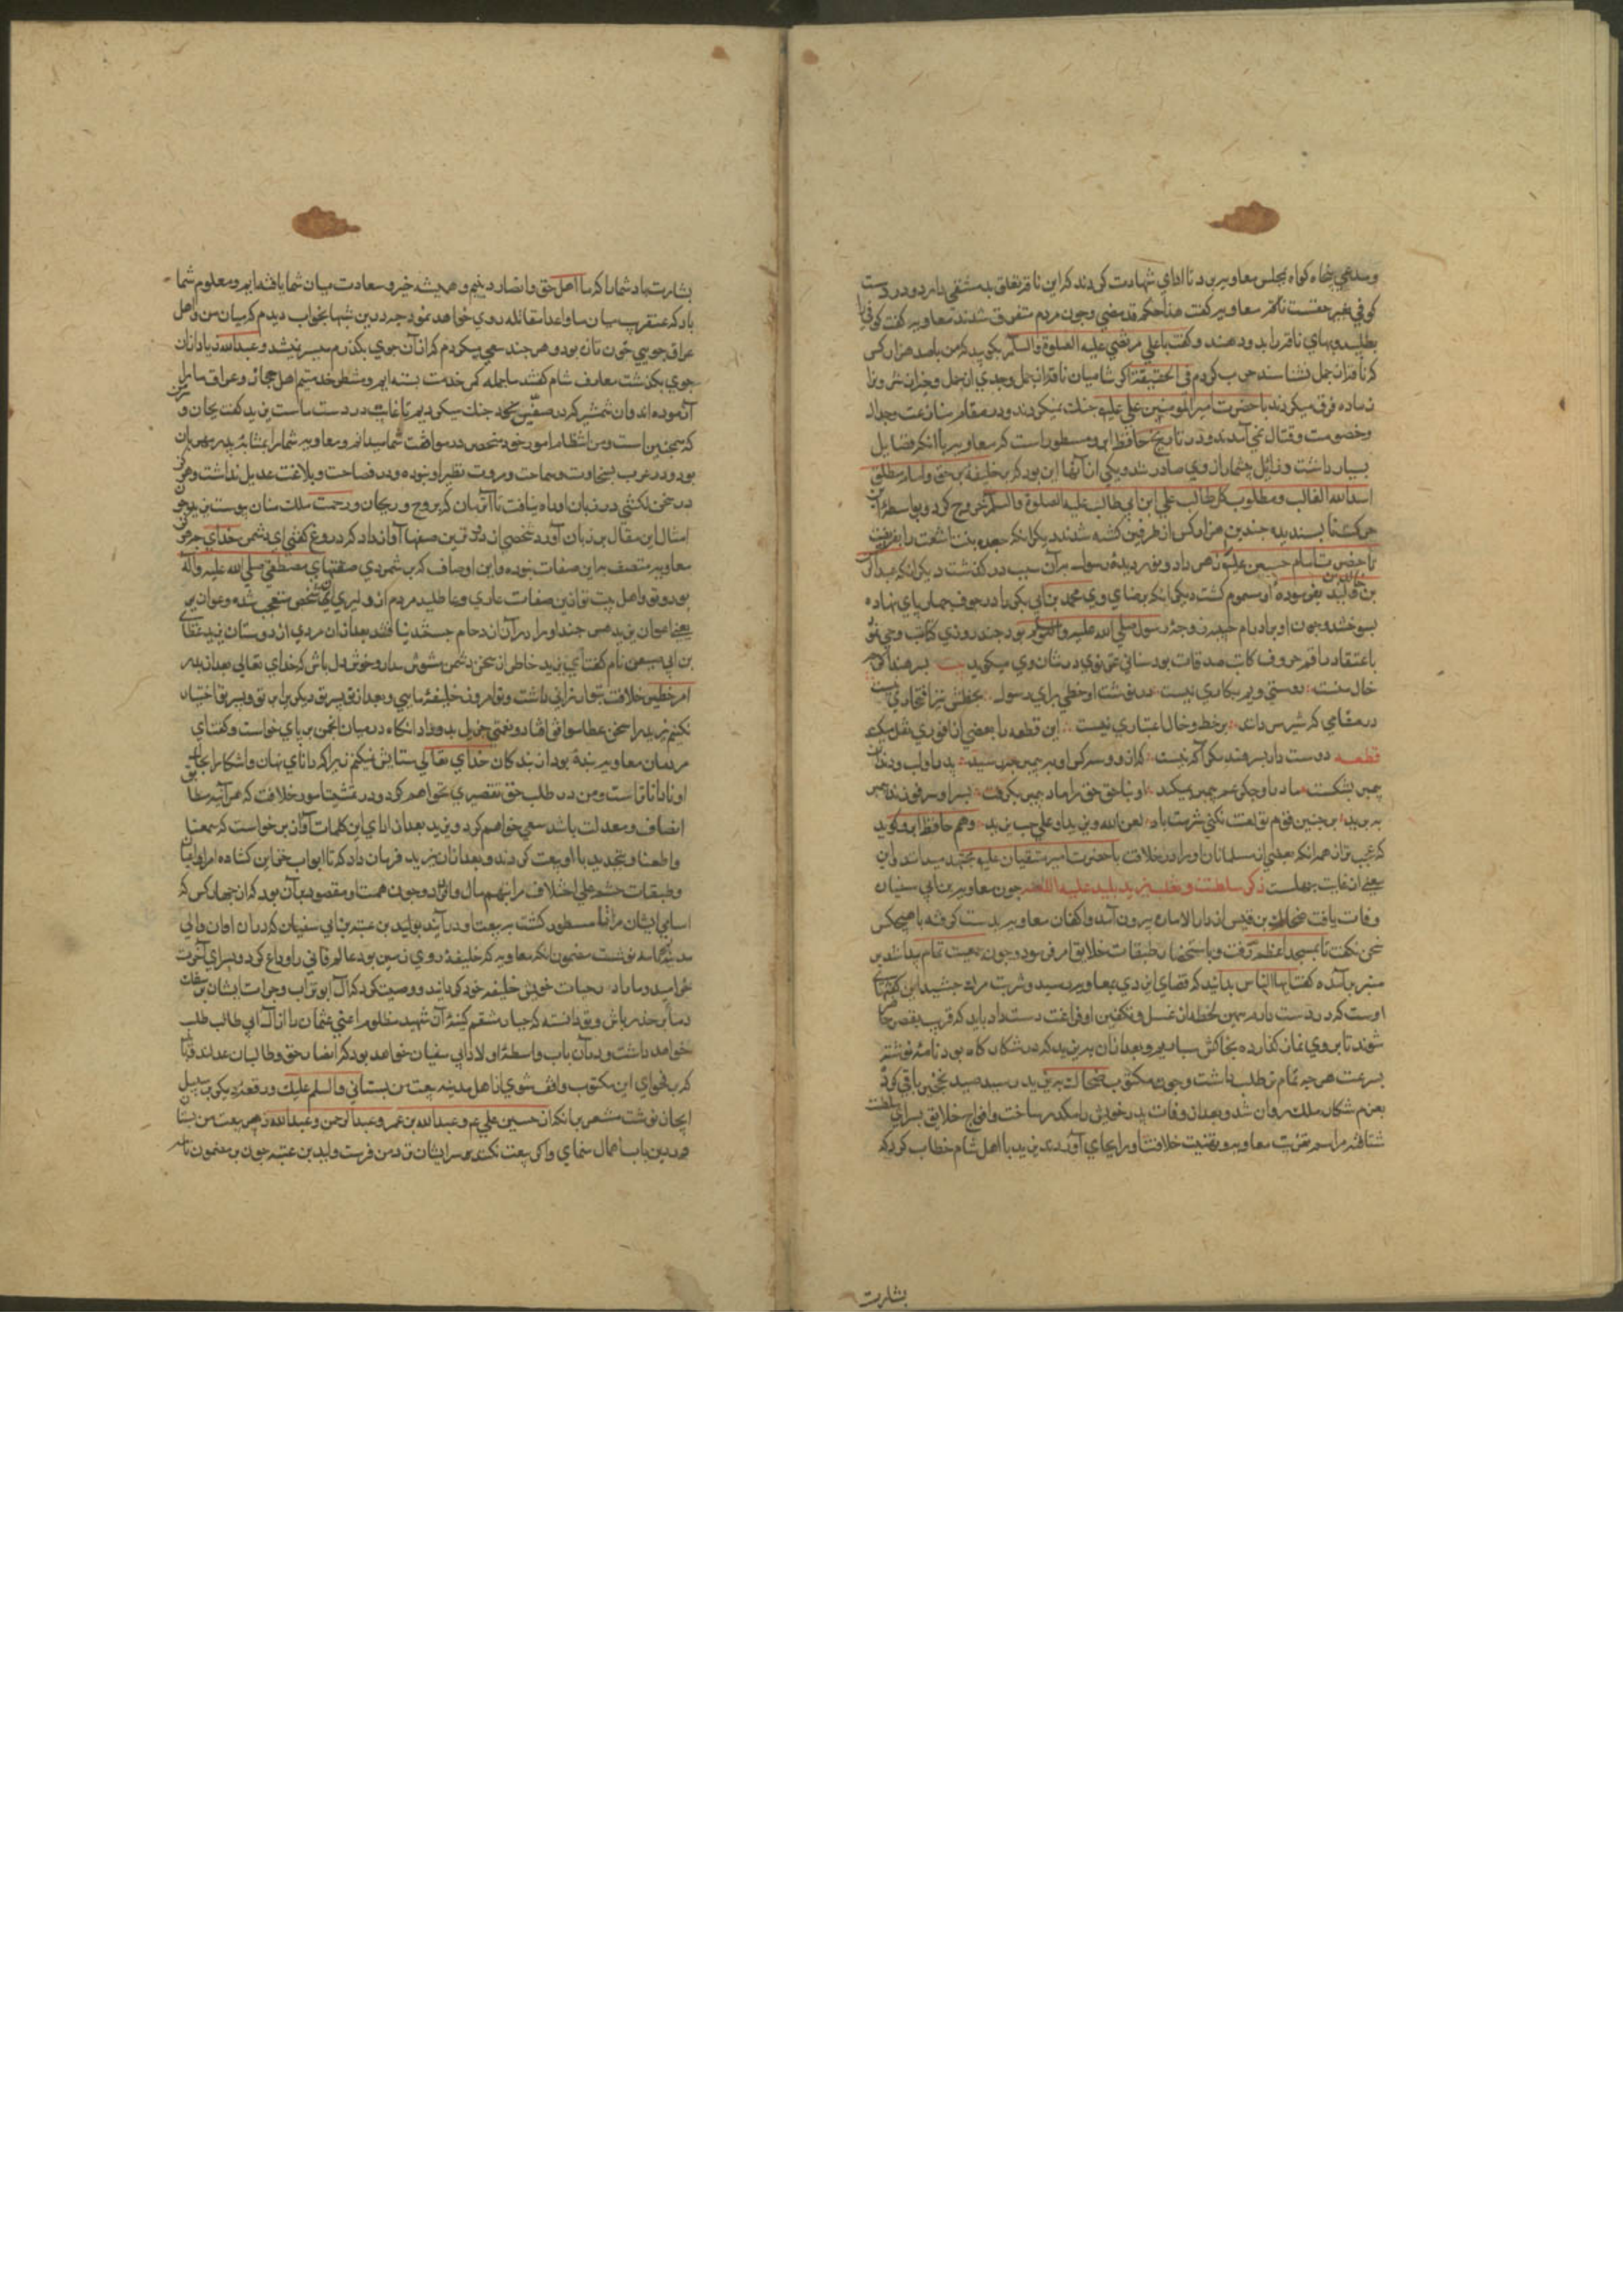 و مدعی پنجاه کواه بمجلس معاویه برد تا ادای شهادت کردند که این ناقه تعلق بدمشقی دارد و در دست
کوفی بغیر حقست معاویه کفت هذا حکم قد مضی و چون مردم متفرق شدند معاویه کفت کوفی را
بطلبید و بهای ناقه را بدو دهند و کفت با علی مرتضی علیه الصلوة والسلم بکویید که من با صد هزار کس
که ناقه از جمل نشناسند حرب کردم فی الحقیقة اکر شامیان ناقه از جمل و جدی از حمل و
نر از ماده فرق میکردند با حضرت امیر المومنین علی علیه جنك نمیکردند و در مقام منازعت و جدال
و خصومت و قتال نمی آمدند و در تاریخ حافظ ابرو مسطور است که معاویه با آنکه فضایل
بسیار داشت و زائل بیشمار از وی صادر شد و یکی از آنها این بود که بر خلیفه بر حق و امام مطلق
اسد الله الغالب و مطلوب کل طالب علی ابن ابی طالب علیه الصلوة والسلم خروج کرد و بواسطه این
حرکت نا پسندیده چندین هزار کس از طرفین کشته شدند دیکر آنکه جعده بنت اشعث را بفریفت
تا حضرت امام حسین علیه زهر داد و نور دیده رسول بر آن سبب در کذشت دیکر آنکه عبدالرحمن
بن خالد بفرموده او مسموم کشت دیکر آنکه برضای وی محمد بن ابی بکر را در جوف حمار پای نهاده
بسوختند و چون او برادر ام حبیبه زوجه رسول صلی الله علیه وآله وسلم بود چند روزی کاتب وحی نبود
باعتقاد راقم حروف کاتب صدقات بود سنائی غزنوی در شان وی میکوید بیت پسر هند اکر چه
خال منست دوستی ویم بکاری نیست ور نوشت او خطی برای رسول بخطش نیز افتخاری نیست
در مقامی که شیر مردانند بر خط و خال اعتباری نیست این قطعه را بعضی از انوری نقل میکنند
قطعه دوست دار پسر هند مکر آکه نیست که ازو و سه کس او به پیمبر چه رسید پدر او لب و دندان
پیمبر بشکست مادر او جکر عم پیمبر بمکید او بنا حق حق داماد پیمبر بکرفت پسر او سر فرزند پیمبر
ببرید بر چنین قوم تو لعنت نکنی شرمت باد لعن الله یزیدا و علی حب یزید و هم حافظ ابرو کوید
که عجب تر از همه آنکه بعضی از مسلمانان او را در خلافت با حضرت امیر متقیان علیه مجتهد میدانند و این
معنی از غایت جهلست ذکر سلطنت و تغلب یزید پلید علیه اللعنه چون معاویه بن ابی سفیان
وفات یافت ضحاك بن قیس از دار الاماره بیرون آمد و اکفان معاویه بدست کرفته با هیچکس
سخن نکفت تا بمسجد اعظم رفت و باستحضار طبقات خلایق امر فرمود و چون جمعیت تمام پیدا شد بر
منبر بر آمده کفت ایها الناس بدانید که قضای ایزدی بمعاویه رسید و شربت مرك چشید این کفنهای
اوست که در دست دارم همین لحظه از غسل و تکفین او فراغت دست داد باید که قریب بعصر حاضر
شوند تا بر وی نماز کذارده بخاکش سپاریم و بعد از آن به یزید که در شکار کاه بود نامه نوشته
بسرعت هر چه تمام تر طلب داشت و چون مکتوب ضحاك به یزید رسید صید نخجیر باقی کرد
بعزم شکار ملك روان شد و بعد از وفات پدر خویش را مکدر ساخت و افواج خلایق بسرای سلطنت
شتافته مراسم تعزیت معاویه و تهنیت خلافت او را بجای آوردند یزید با اهل شام خطاب کرد که
بشارت
بشارت باد شما را که ما اهل حق و انصار دینیم و همیشه خیر و سعادت میان شما یافته ایم و معلوم شما
باد که عنقریب میان ما و اعدا مقاتله روی خواهد نمود چه درین شبها بخواب دیدم که میان من و اهل
عراق جویی خون تازه بود و هر چند سعی میکردم که از آن جوی بکذرم میسر نمیشد و عبدالله زیاد از آن
جوی بکذشت معارف شام کفتند ما جمله کمر خدمت بسته ایم و منتظر خدمتیم اهل حجاز و عراق ما را
آزموده اند و آن شمشیر که در صفین بآن جنك میکردیم تا غایت در دست ماست یزید کفت بجان و
که همچنین است و من انتظام امور خود منحصر در موافقت شما میدانم و معاویه شما را بمثابه پدر مهربان
بود و در عرب بسخاوت و سماحت و مروت نظیر او نبوده و در فصاحت و بلاغت عدیل نداشت و هرکز
در سخن لکنتی در زبان او راه نیافت تا آن زمان که بروح و ریحان و رحمت ملك منان پیوست یزید چون
امثال این مقال بر زبان آورد شخصی از دور ترین صفها آواز داد که دروغ کفتی ای دشمن خدای هرکز
معاویه متصف براین صفات نبوده و این اوصاف که بر شمردی صفتهای مصطفی صلی الله علیه وآله
بود و تو و اهل بیت تو ازین صفات عاری و عاطلید مردم از دلیری آن شخص متعجب شده و اعوان یزید
یعنی اعوان یزید هر چند او را در آن ازدحام جستند نیافتند بعد از آن مردی از دوستان یزید عطای
بن ابی صیفی نام کفت ای یزید خاطر از سخن دشمن مشوش مدار و خوش دل باش که خدای تعالی بعد از پدر
امر خطیر خلافت بتو ارزانی داشت و تو امروز خلیفه مایی و بعد از تو پسر تو دیکری را بر تو و پسر تو اختیار
نکنیم یزید را سخن عطا موافق افتاد و نعمتی جزیل بدو داد آنکاه در میان انجمن بر پای خواست و کفت ای
مردمان معاویه بنده بود از بندکان خدای تعالی ستایش نمیکنم زیرا که دانای نهان و آشکارا بحال
او دانا تر است و من در طلب حق تقصیری نخواهم کرد و در تمشیت امور خلافت که هر آینه مطابق
انصاف و معدلت باشد سعی خواهم کرد و یزید بعد از ادای این کلمات آواز بر خواست که سمعنا
و اطعنا و بتجدید با او بیعت کردند و بعد از آن یزید فرمان داد که تا ابواب خزاین کشاده امراء
و طبقات حشم علی اختلاف مراتبهم مال وافر داد و چون همت او مقصور بر آن بود که از چهار کس که
اسامی ایشان مرارا مسطور کشت به بیعت او در آیند بولید بن عتبه بن ابی سفیان که در آن اوان والی
مدینه بود نامه نوشت مضمون آنکه معاویه که خلیفه روی زمین بود عالم فانی را وداع کرد و بسرای آخرت
خرامید و ما را در حیات خویش خلیفه خود کردانید و وصیت کرد که از آل ابو تراب و جرات ایشان بر سفك
دما بر حذر باش و تو دانسته که جبار منتقم کینه آن شهید مظلوم اعنی عثمان را از آل ابی طالب طلب
خواهد داشت و در آن باب واسطه اولاد ابی سفیان خواهند بود که انصار حق و طالبان عدلند
که بر فحوای این مکتوب واقف شوی از اهل مدینه بیعت من بستانی والسلم علیك و رقعه دیکر بر سبیل
ایجاز نوشت مشعر بانکه از حسین علی عم و عبد الله بن عمر و عبد الرحمن و عبد الله زبیر بیعت من بستان
و درین باب اهمال منمای و اکر بیعت نکنند سر ایشان نزد من فرست ولید بن عتبه چون بر مضمون نامه